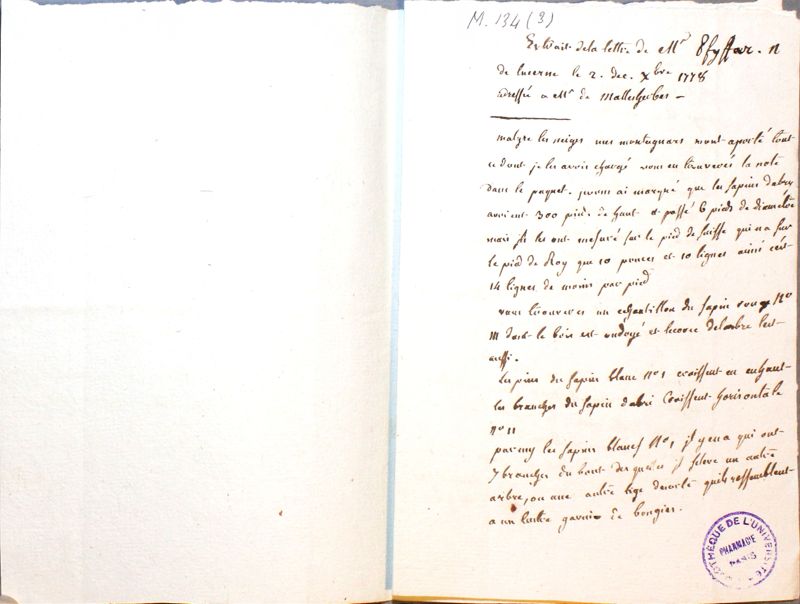 M. 134 (3)
Extrait de la lettre de Mr Pfyffer. n
de lucerne le 2. dec. xbre 1778
adressée a Mr de Mallesherbes —
malgre les neiges mes montagnars mont aporté tout
ce dont je les avois chargé vous en trouverés la note
dans le paquet. je vous ai marqué que les sapins dabry
avoient 300 pieds de haut et passé 6 pieds de diamêtre
mais ils les ont mesuré sur le pied de suisse qui na sur
le pied de Roy que 10 pouces et 10 lignes ainsi cest
14 lignes de moins par pied
vous trouveres un echantillon du sapin rouge No
III dont le bois est ondoyé et lecorce delarbre lest
aussi.
Les pives du sapin blanc No 1 croissent en enhaut
les branches du sapin dabri croissent horisontale
No 11
parmy les sapins blancs No 1 il y en a qui ont
7 branches du bout des quelles il seleve un autre
arbre, ou une autre tige de sorte quils ressemblent
a un lustre garnie de bougies.
BIBLIOTHÈQUE DE L'UNIVERSITÉ
PHARMACIE
PARIS